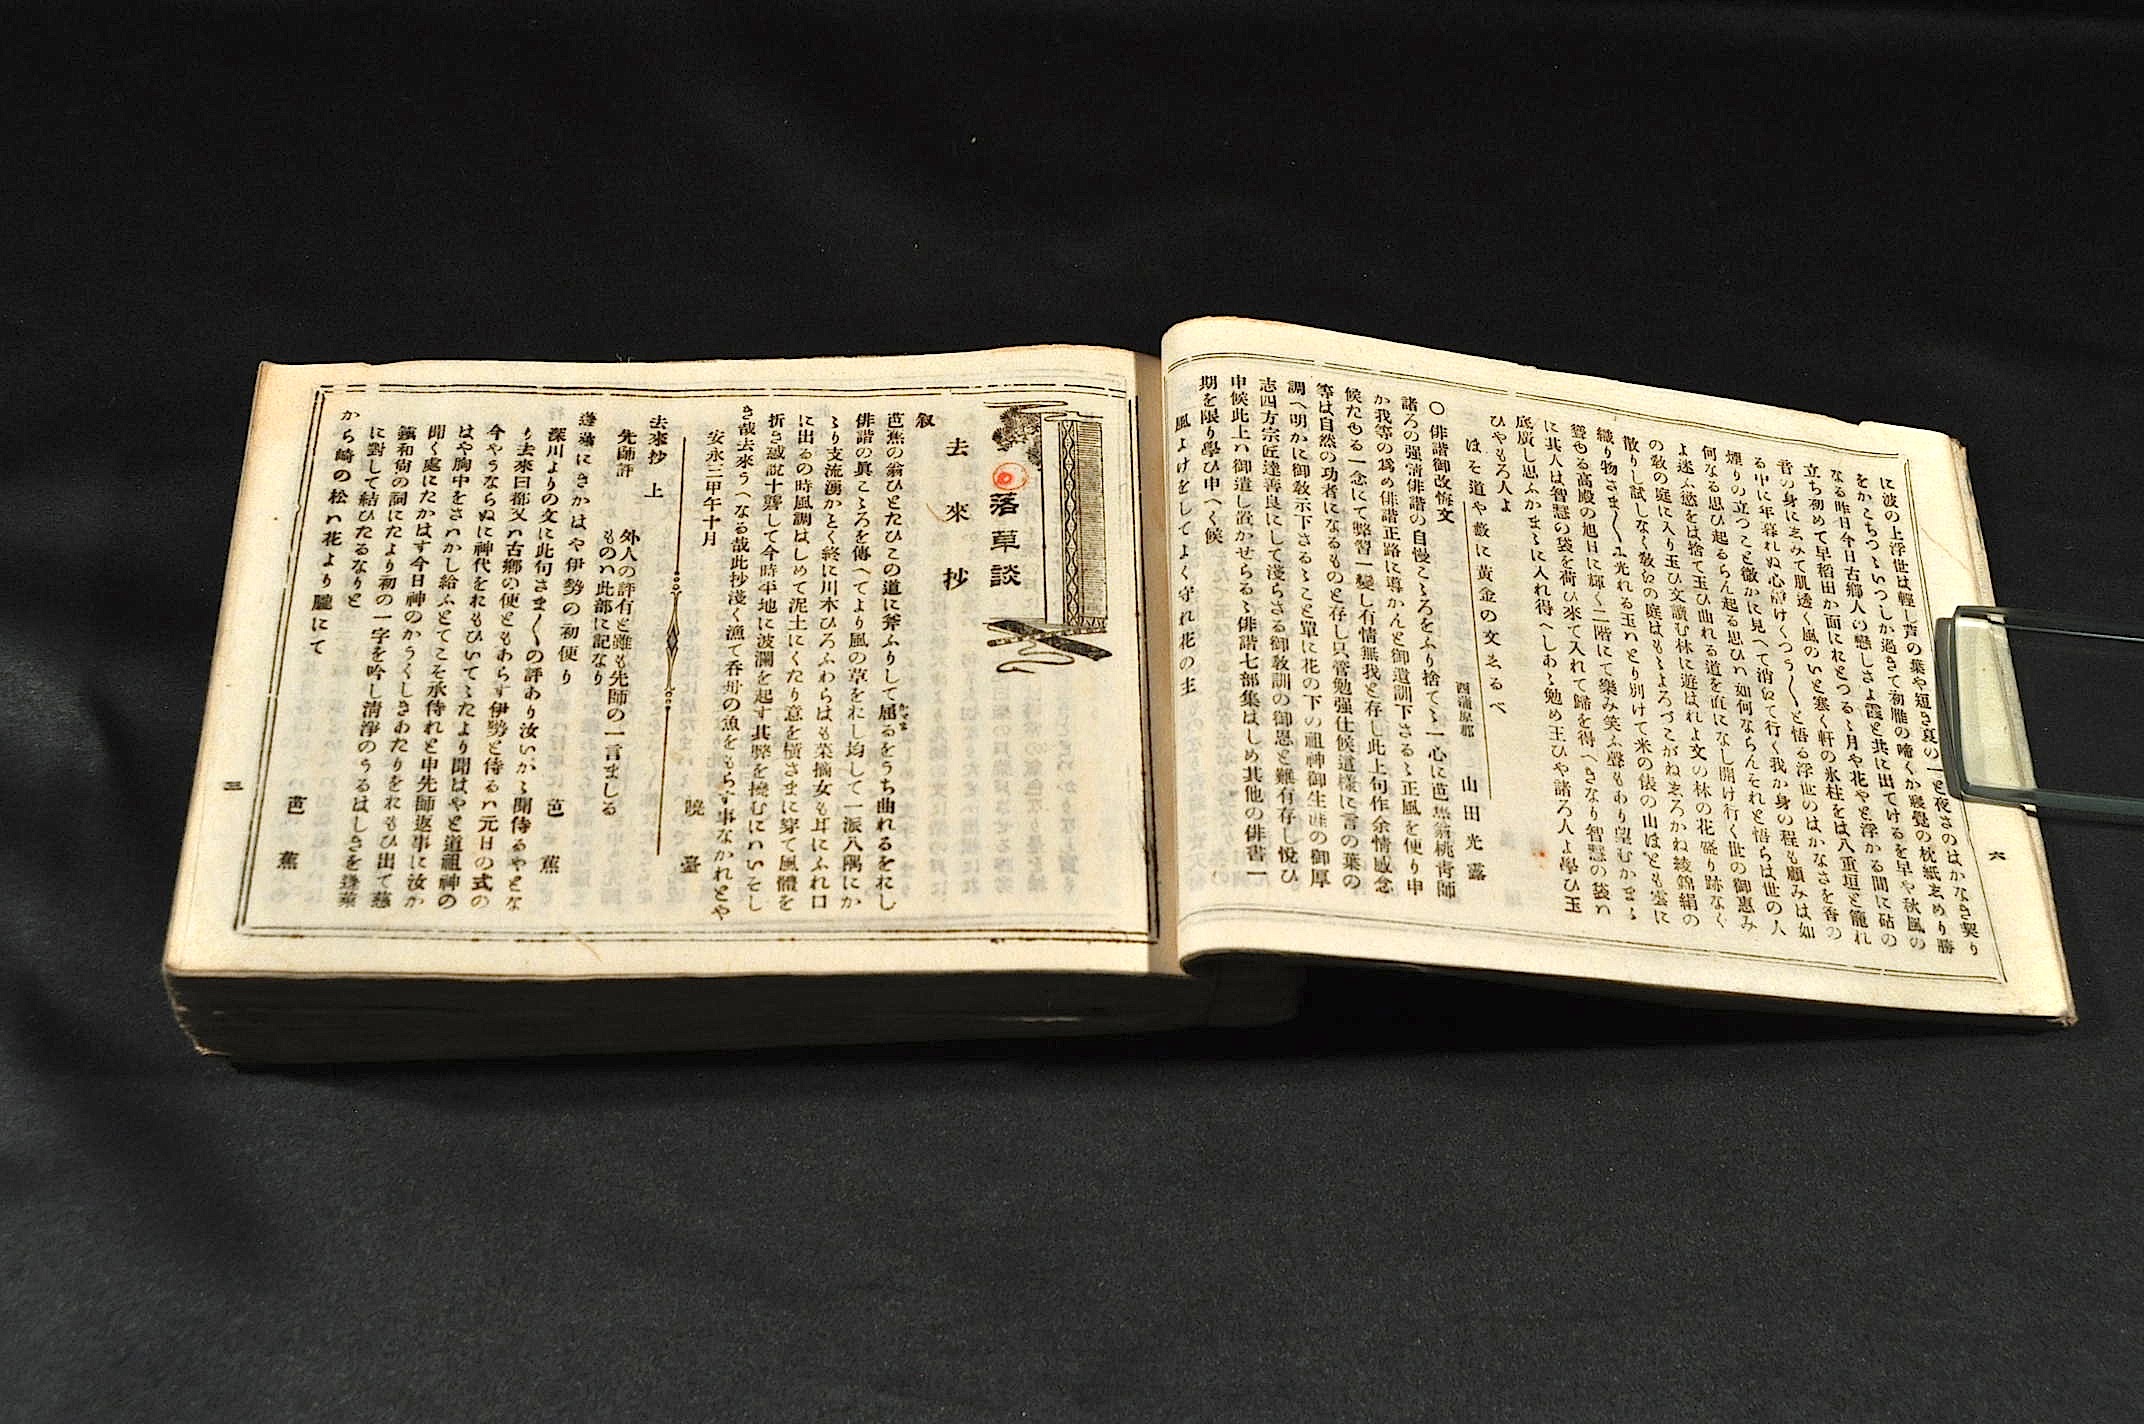 に波の上浮世は輕し芦の葉や短き夏の一と夜さのはかなき契り
をかこちつゝいつしか過きて初雁の啼くか寝覺の枕紙ゑめり勝
なる昨日今日古郷人の戀しさよ霞と共に出てけるを早や秋風の
立ち初めて早稻田か面にれとつるゝ月や花やと浮かる間に砧の
音の身にゑみて肌透く風のいと塞く軒の氷柱をは八重垣と籠れ
る中に年暮れぬ心
煙りの立つこと微かに見へて消ぬて行く我か身の程も顧みは如
何なる思ひ起るらん起る思ひハ如何ならんそれと悟らは世の人
よ迷ふ慾をは捨て玉ひ曲れる道を直になし開け行く世の御惠み
の敎の庭に入り玉ひ文讀む林に遊はれよ文の林の花盛り跡なく
散りし試しなく敎ぬの庭はもゝよろづこがねゑろかね綾錦絹の
織り物さま〱ユ光れる玉ハとり別けて米の俵の山ほとも雲に
聳もる高殿の旭日に輝く二階にて樂み笑ふ聲もあり望むかまゝ
に其人は智慧の袋を荷ひ來て入れて歸を得へきなり智慧の袋ハ
底廣し思ふかまゝに入れ得へしあゝ勉め玉ひや諸ろ人よ學ひ玉
ひやもろ人よ
ほそ道や藪に黃金の文ゑるべ
西蒲原郡 山田光露
〇俳諧御改悔文
諸ろの强情俳諧の自慢こゝろをふり捨てゝ一心に芭蕉翁桃靑師
か我等の爲め俳諧正路に導かんと御遺訓下さるゝ正風を便り申
候たもる一念にて弊習一變し有情無我と存し此上句作余情感念
等は自然の功者になるものと存し只管勉强仕候這樣に言の葉の
調へ明かに御敎示下さること單に花の下の祖神御生涯の御厚
志四方宗匠達善良にして淺らさる御敎訓の御恩と難有存し悅ひ
申候此上ハ御遺し置かせらるゝ俳諧七部集はしめ其他の俳書一
期を限り學ひ申へく候
風よけをしてよく守れ花の主
六
落草談
去來抄
叙
芭蕉の翁ひとたひこの道に斧ふりして屈るをうち曲れるをれし
俳諧の眞こゝろを傳へてより風の草をれし均して一派八隅にか
より支流湧かとく終に川木ひろふわらはも菜摘女も耳にふれ口
に出るの時風調はしめて泥土にくたり意を横さまに穿て風體を
折き誠說十襲して今時平地に波瀾を起す其弊を撓むにハいそし
き哉去來うへなる哉此抄淺く漁て呑舟の魚をもらす事なかれとや
安永三甲午十月
曉臺
去來抄 上
先師評 外人の評有と雖も先師の一言ましる
ものハ此部に記なり
蓬萊にきかはや伊勢の初便り 芭蕉
深川よりの文に此句さま〱の評あり汝いかゝ聞侍るやとな
り去來曰都又ハ古鄕の便ともあらす伊勢と侍るハ元日の式の
今やうならぬに神代をれもひいてゝたより聞はやと道祖神の
はや胸中をさハかし給ふとてこそ承侍れと申先師返事に汝か
聞く處にたかはす今日神のかうくしきあたりをれもひ出て慈
鎭和尙の詞にたより初の一字を吟し淸淨のうるはしきを蓬萊
に對して結ひたるなりと
から崎の松ハ花より朧にて 芭蕉
三